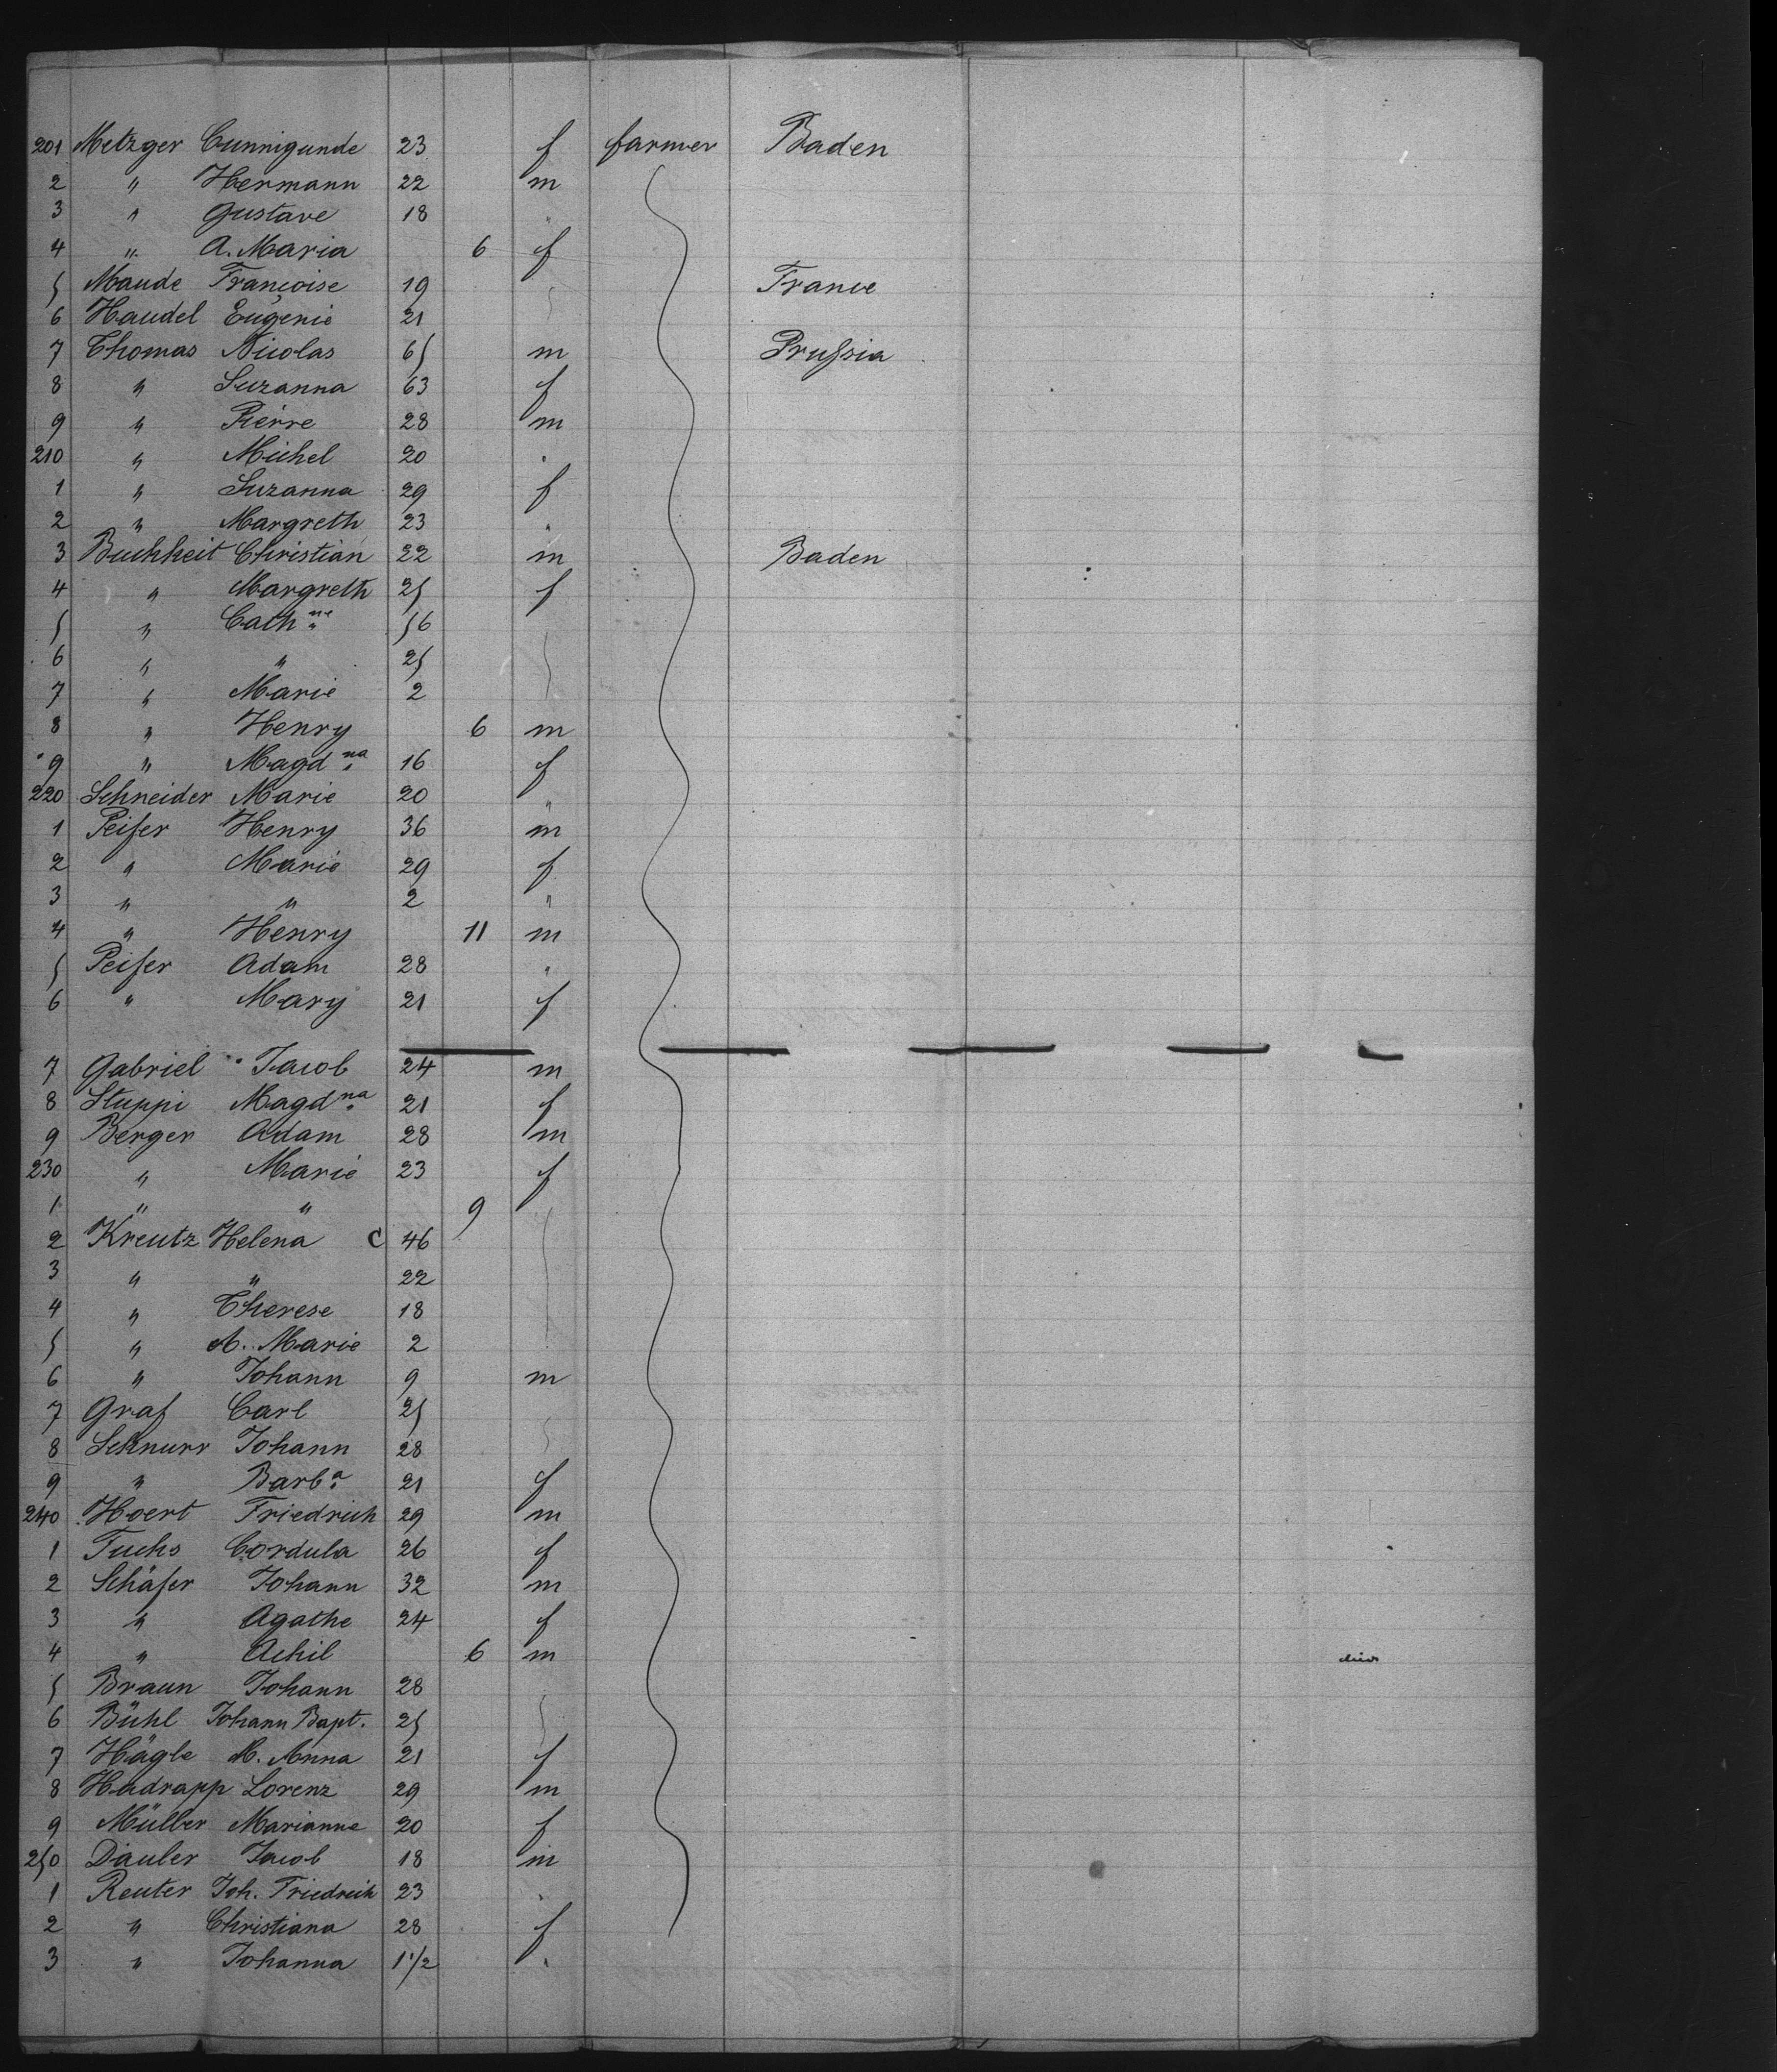 201 Metzger Cunnigunde 23 f farmer Baden
2 " Hermann 22 m
3 " Gustave 18 "
4 " A. Maria 6 f
5 Maude Françoise 19 France
6 Haudel Eugenie 21
7 Thomas Nicolas 65 m Prussia
8 " Suzanna 63 f
9 " Pierre 28 m
210 " Michel 20 "
1 " Suzanna 29 f
2 " Margreth 23 "
3 Buchheit Christian 22 m Baden
4 " Margreth 25 f
5 " Cath ne 56
6 " " 25
7 " Marie 2
8 " Henry 6 m
9 " Magd na 16 f
220 Schneider Marie 20 "
1 Peifer Henry 36 m
2 " Marie 29 f
3 " " 2 "
4 " Henry 11 m
5 Peifer Adam 28 "
6 " Mary 21 f
7 Gabriel Jacob 24 m
8 Stuppi Magd na 21 f
9 Berger Adam 28 m
230 " Marie 23 f
1 " " 9
2 Kreutz Helena C 46
3 " " 22
4 " Therese 18
5 " A. Marie 2
6 " Johann 9 m
7 Graf Carl 25
8 Schnurr Johann 28
9 " Barb a 21 f
240 Hoert Friedrich 29 m
1 Fuchs Cordula 26 f
2 Schäfer Johann 32 m
3 " Agathe 24 f
4 " Achil 6 m
5 Braun Johann 28
6 Bühl Johann Bapt. 25
7 Hägle M. Anna 21 f
8 Hadrapp Lorenz 29 m
9 Müller Marianne 20 f
250 Däuler Jacob 18 m
1 Reuter Joh. Friedrich 23 "
2 " Christiana 28 f
3 " Johanna 1 1/2 "